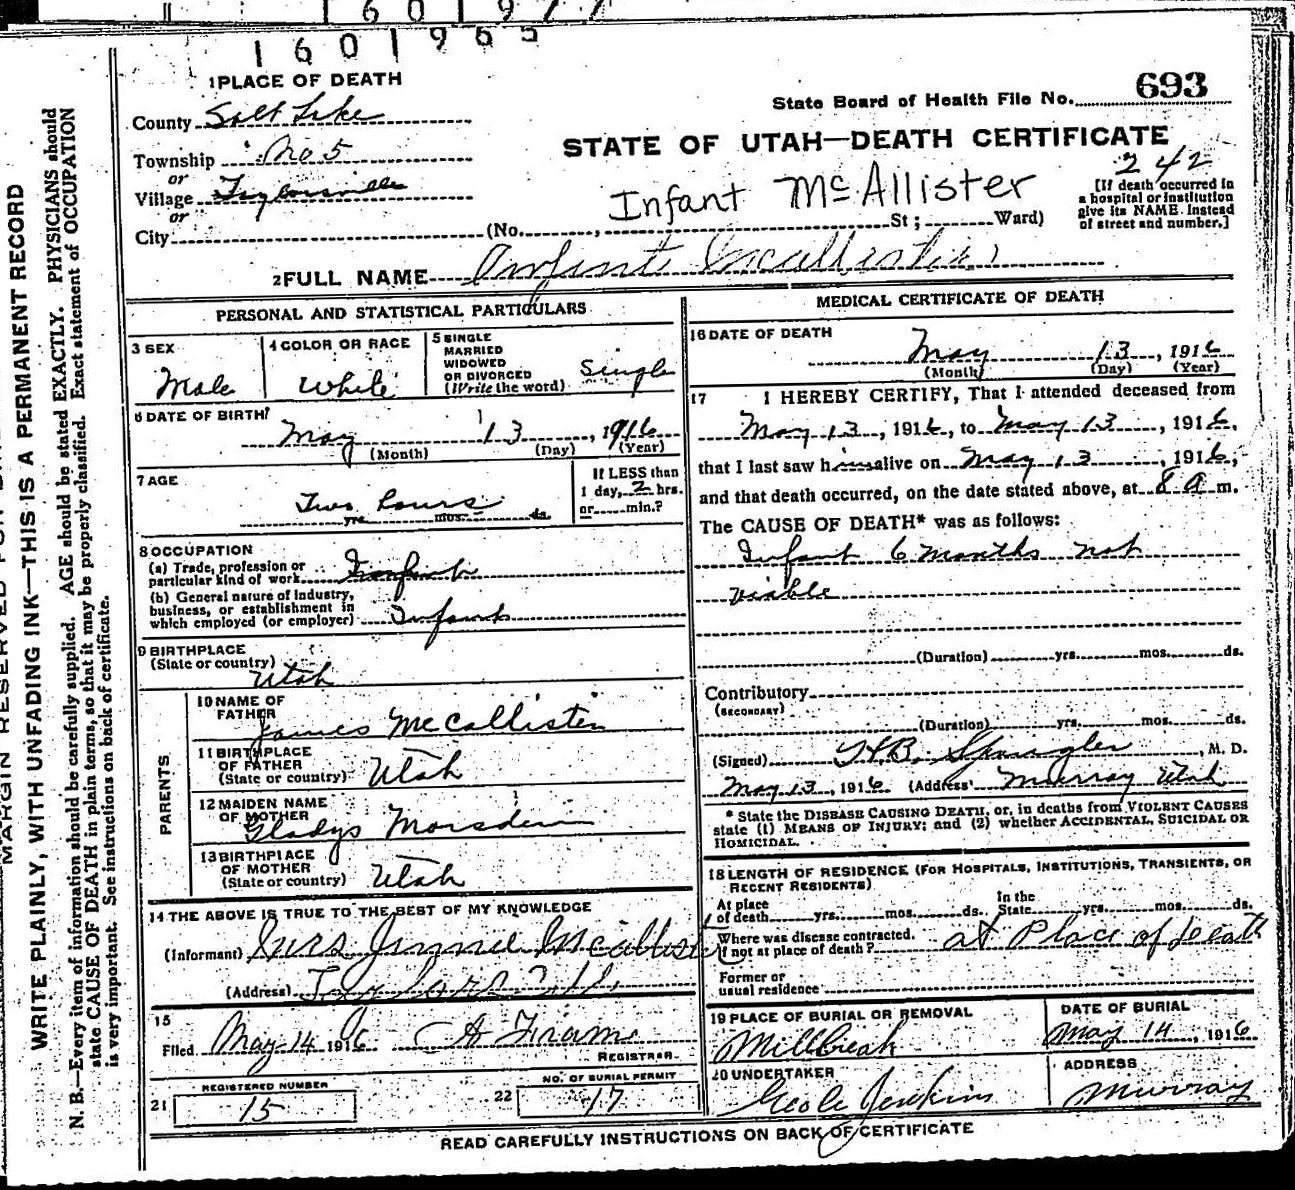 1601977
1601965
1 PLACE OF DEATH
County Salt Lake
Township No 5
or
Village Taylorsville
or
City (No. , St ; Ward)
State Board of Health File No. 693
STATE OF UTAH—DEATH CERTIFICATE
242
Infant McAllister
[If death occurred in
a hospital or institution
give its NAME instead
of street and number.]
2 FULL NAME Infant McAllister
PERSONAL AND STATISTICAL PARTICULARS
3 SEX
Male
4 COLOR OR RACE
White
5 SINGLE
MARRIED
WIDOWED
OR DIVORCED
(Write the word)
Single
6 DATE OF BIRTH
May 13, 1916
(Month) (Day) (Year)
7 AGE
Two hours
yrs. mos. ds.
If LESS than
1 day, 2 hrs.
or min.?
8 OCCUPATION
(a) Trade, profession or
particular kind of work Infant
(b) General nature of Industry,
business, or establishment in
which employed (or employer) Infant
9 BIRTHPLACE
(State or country)
Utah
PARENTS
10 NAME OF
FATHER
James McCallister
11 BIRTHPLACE
OF FATHER
(State or country) Utah
12 MAIDEN NAME
OF MOTHER
Gladys Morsden
13 BIRTHPLACE
OF MOTHER
(State or country) Utah
14 THE ABOVE IS TRUE TO THE BEST OF MY KNOWLEDGE
(Informant) Mrs Jimmie McAllister
(Address)
15
Filed May 14 1916
REGISTRAR
REGISTERED NUMBER
21 15
NO. OF BURIAL PERMIT
22 17
MEDICAL CERTIFICATE OF DEATH
16 DATE OF DEATH
May 13, 1916
(Month) (Day) (Year)
17 I HEREBY CERTIFY, That I attended deceased from
May 13, 1916, to May 13, 1916,
that I last saw him alive on May 13, 1916,
and that death occurred, on the date stated above, at 8 a m.
The CAUSE OF DEATH* was as follows:
Infant 6 months not
viable
(Duration) yrs. mos. ds.
Contributory
(SECONDARY)
(Duration) yrs. mos. ds.
(Signed) H.B. Spangler, M. D.
May 13, 1916 (Address) Murray Utah
* State the DISEASE CAUSING DEATH, or, in deaths from VIOLENT CAUSES
state (1) MEANS OF INJURY; and (2) whether ACCIDENTAL, SUICIDAL OR
HOMICIDAL.
18 LENGTH OF RESIDENCE (FOR HOSPITALS, INSTITUTIONS, TRANSIENTS, OR
RECENT RESIDENTS)
At place
of death yrs. mos. ds.
In the
State yrs. mos. ds.
Where was disease contracted,
if not at place of death? at Place of death
Former or
usual residence
19 PLACE OF BURIAL OR REMOVAL
Millcreek
DATE OF BURIAL
May 14, 1916
20 UNDERTAKER
Jenkins
ADDRESS
Murray
READ CAREFULLY INSTRUCTIONS ON BACK OF CERTIFICATE
WRITE PLAINLY, WITH UNFADING INK—THIS IS A PERMANENT RECORD
N. B.—Every item of information should be carefully supplied. AGE should be stated EXACTLY. PHYSICIANS should
state CAUSE OF DEATH in plain terms, so that it may be properly classified. Exact statement of OCCUPATION
is very important. See instructions on back of certificate.